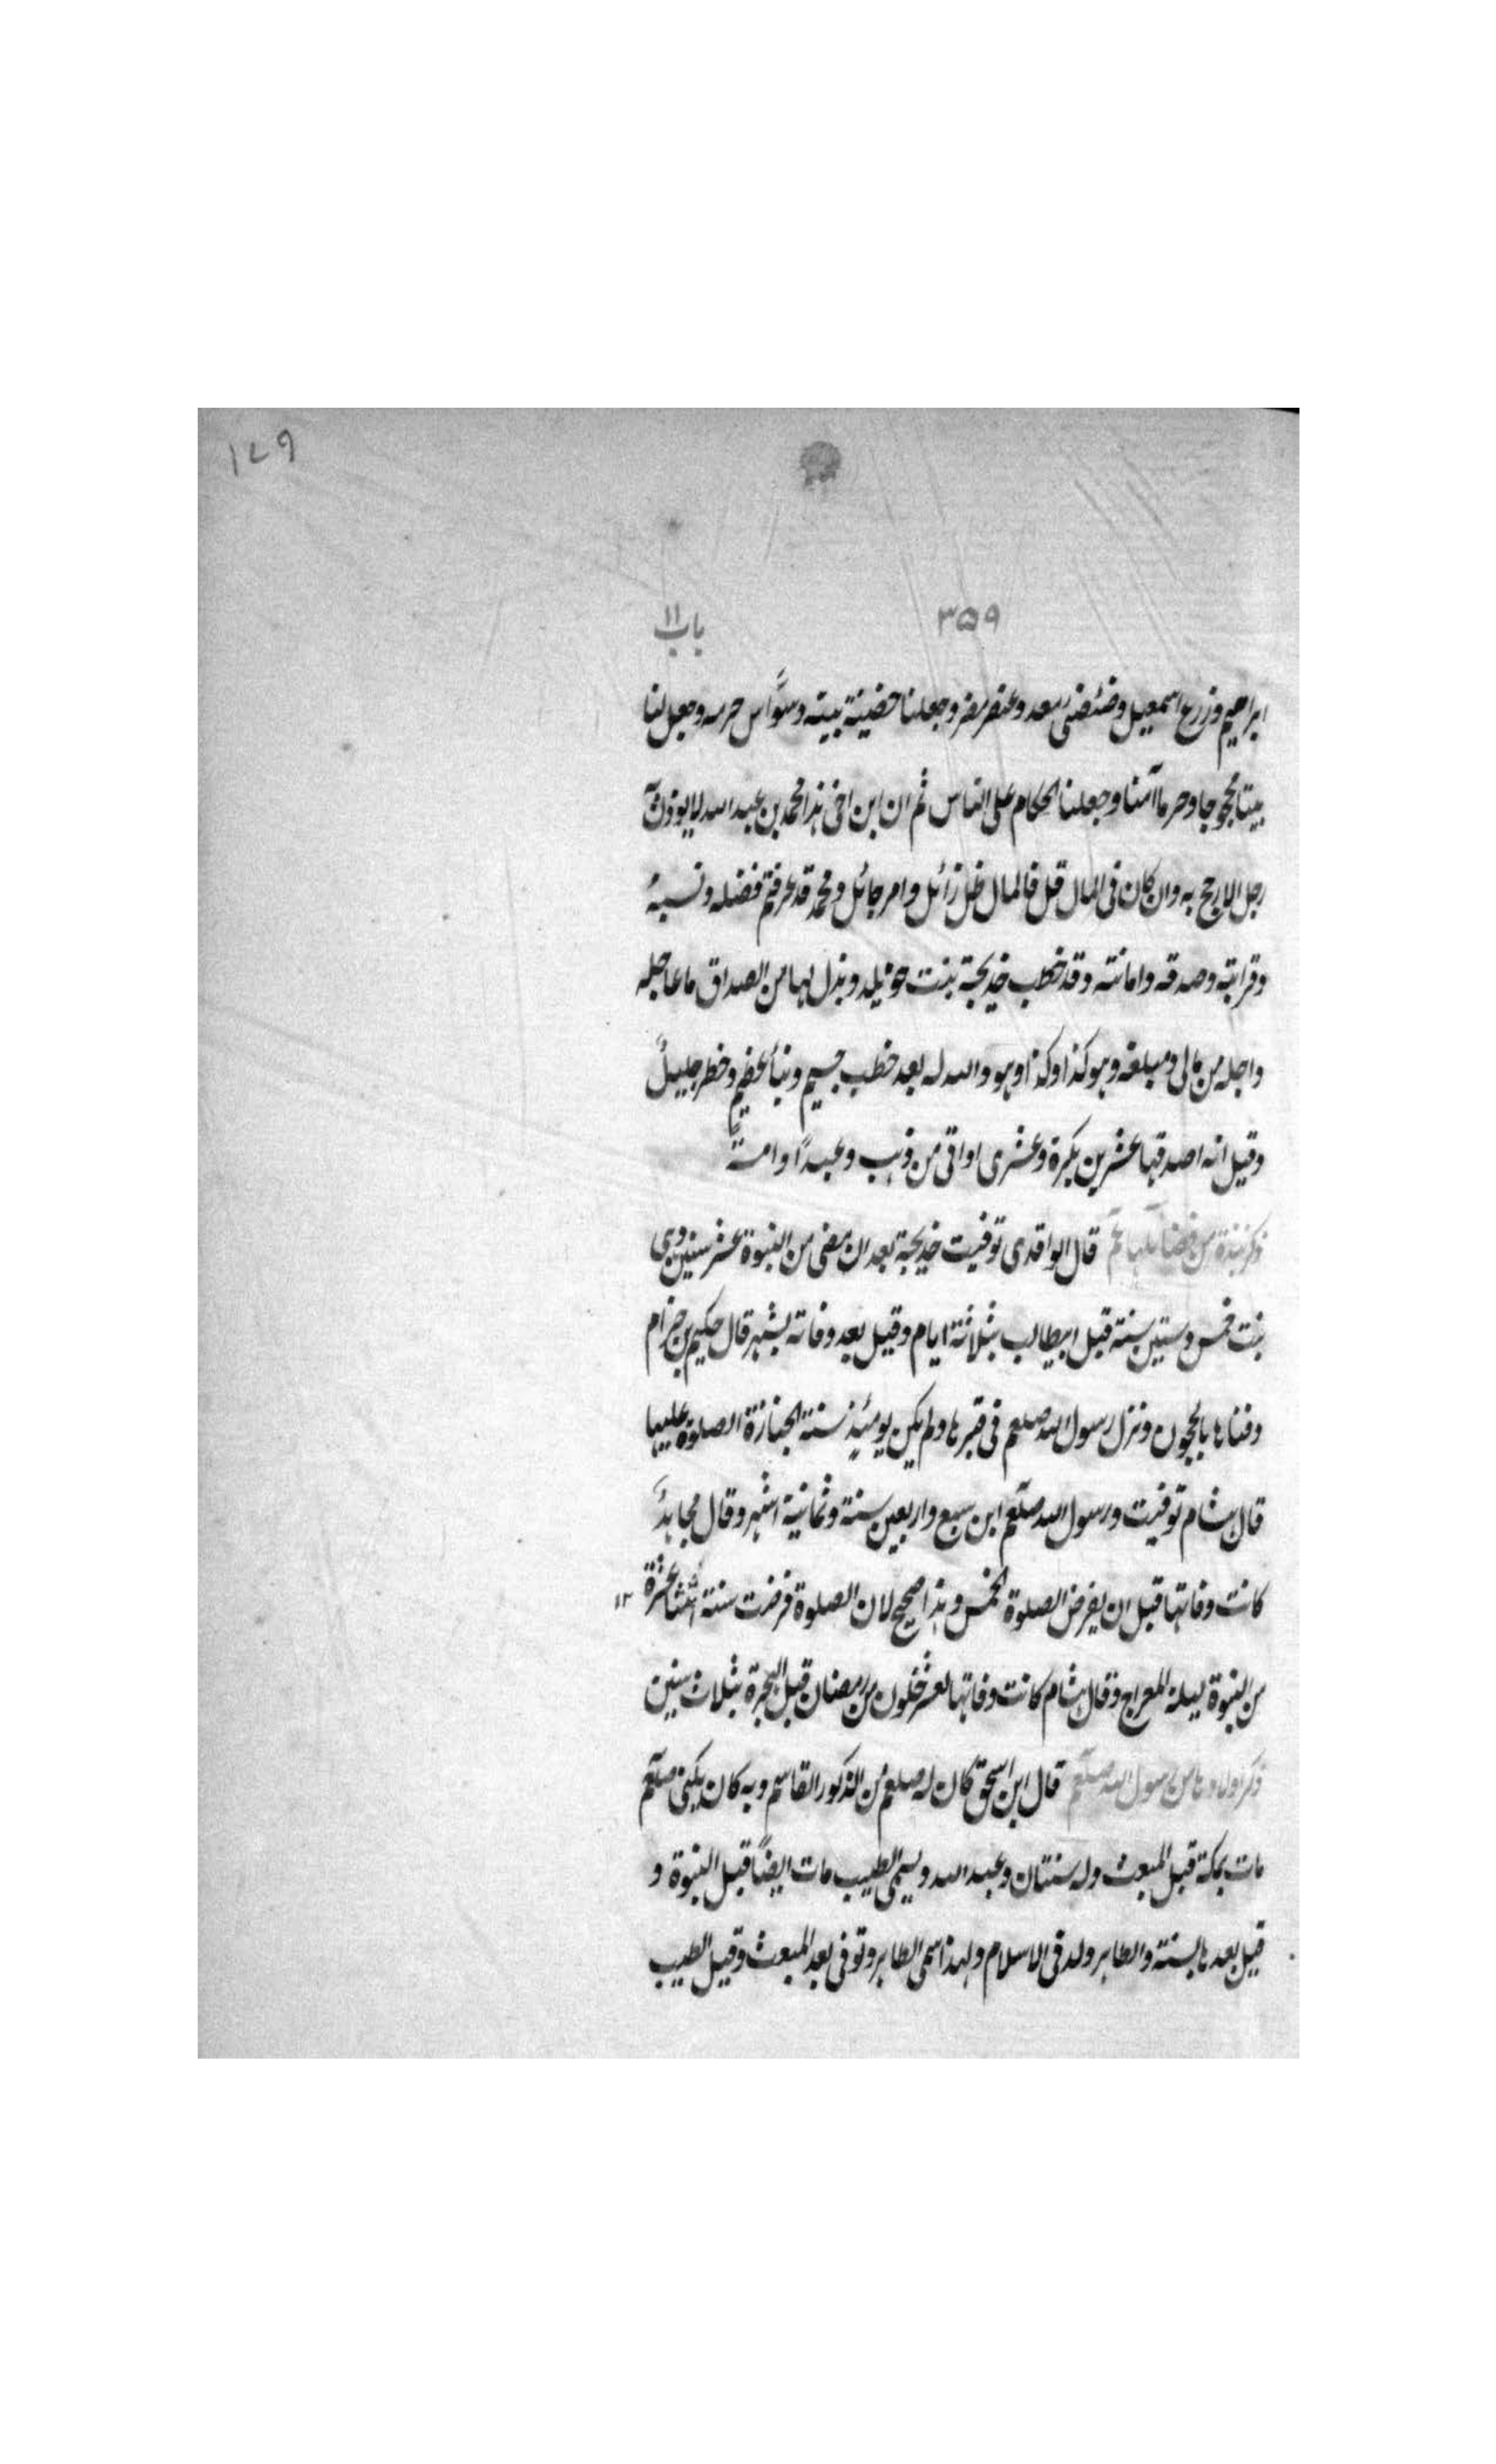 ۱۷۹
۳۵۹
باب ۱۱
ابراهیم وزرع اسمعیل وضئضئ معد وعنصر مضر وجعلنا حضینة بیته وسوّاس حرمه وجعل لنا
بیتا محجوجا وحرما آمنا وجعلنا الحکام علی الناس ثم ان ابن اخی هذا محمد بن عبد الله لا یوزن
رجل الا رجح به وان کان فی المال قل فالمال ظل زائل وامر حائل ومحمد قد عرفتم فضله ونسبه
وقرابته وصدقه وامانته وقد خطب خدیجة بنت خویلد وبذل لها من الصداق ما عاجله
واجله من مالی ومبلغه وهو کذا وکذا وهو والله له بعد خطب جسیم ونبأ عظیم وخطر جلیل
وقیل انه اصدقها عشرین بکرة وعشری اواقی من ذهب وعبدًا وامةً
ذکر نبذة من فضائلها قال الواقدی توفیت خدیجة بعد ان مضی من النبوة عشر سنین وهی
بنت خمس وستین سنة قبل ابیطالب بثلاثة ایام وقیل بعد وفاته بشهر قال حکیم بن حزام
دفناها بالحجون ونزل رسول الله صلعم فی قبرها ولم یکن یومئذ سنة الجنازة الصلوة علیها
قال هشام توفیت ورسول الله صلعم ابن سبع واربعین سنة وثمانیة اشهر وقال مجاهد
کانت وفاتها قبل ان یفرض الصلوة الخمس وهذا صحیح لان الصلوة فرضت سنة اثنتا عشرة ۱۲
من النبوة لیلة المعراج وقال هشام کانت وفاتها لعشر خلون من رمضان قبل الهجرة بثلاث سنین
ذکر اولادها من رسول الله صلعم قال ابن اسحق کان له صلعم من الذکور القاسم وبه کان یکنی صلعم
مات بمکة قبل المبعث وله سنتان وعبد الله ویسمی الطیب مات ایضًا قبل النبوة و
قیل بعدها بسنة والطاهر ولد فی الاسلام ولهذا سمی الطاهر وتوفی بعد المبعث وقیل الطیب